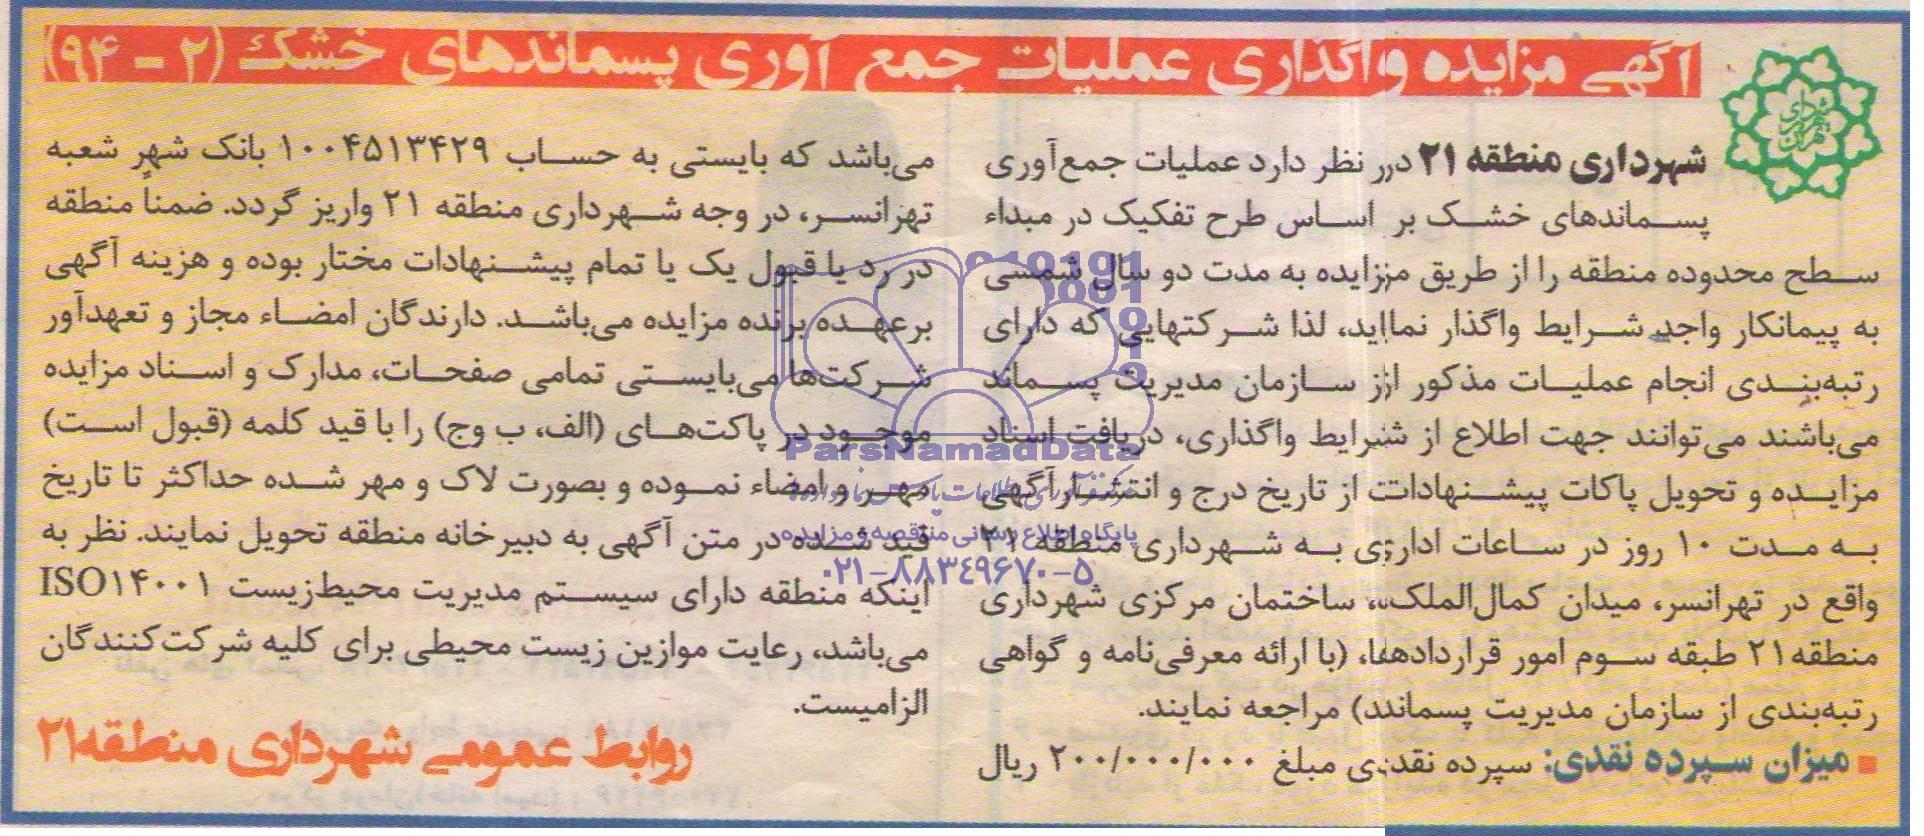 آگهی مزایده واگذاری عملیات جمع آوری پسماندهای خشک (۲ - ۹۴)
شهرداری منطقه ۲۱ در نظر دارد عملیات جمع‌آوری
پسماندهای خشک بر اساس طرح تفکیک در مبداء
سطح محدوده منطقه را از طریق مزایده به مدت دو سال شمسی
به پیمانکار واجد شرایط واگذار نماید، لذا شرکتهایی که دارای
رتبه‌بندی انجام عملیات مذکور از سازمان مدیریت پسماند
می‌باشند می‌توانند جهت اطلاع از شرایط واگذاری، دریافت اسناد
مزایده و تحویل پاکات پیشنهادات از تاریخ درج و انتشار آگهی
به مدت ۱۰ روز در ساعات اداری به شهرداری منطقه ۲۱
واقع در تهرانسر، میدان کمال‌الملک، ساختمان مرکزی شهرداری
منطقه ۲۱ طبقه سوم امور قراردادها، (با ارائه معرفی‌نامه و گواهی
رتبه‌بندی از سازمان مدیریت پسماند) مراجعه نمایند.
▪ میزان سپرده نقدی: سپرده نقدی مبلغ ۲۰۰/۰۰۰/۰۰۰ ریال
می‌باشد که بایستی به حساب ۱۰۰۴۵۱۳۴۲۹ بانک شهر شعبه
تهرانسر، در وجه شهرداری منطقه ۲۱ واریز گردد. ضمناً منطقه
در رد یا قبول یک یا تمام پیشنهادات مختار بوده و هزینه آگهی
برعهده برنده مزایده می‌باشد. دارندگان امضاء مجاز و تعهدآور
شرکت‌ها می‌بایستی تمامی صفحات، مدارک و اسناد مزایده
موجود در پاکت‌های (الف، ب وج) را با قید کلمه (قبول است)
مهر و امضاء نموده و بصورت لاک و مهر شده حداکثر تا تاریخ
قید شده در متن آگهی به دبیرخانه منطقه تحویل نمایند. نظر به
اینکه منطقه دارای سیستم مدیریت محیط‌زیست ISO۱۴۰۰۱
می‌باشد، رعایت موازین زیست محیطی برای کلیه شرکت‌کنندگان
الزامیست.
روابط عمومی شهرداری منطقه۲۱
ParsNamadData
پایگاه اطلاع رسانی مناقصه و مزایده
۰۲۱-۸۸۳۴۹۶۷۰-۵